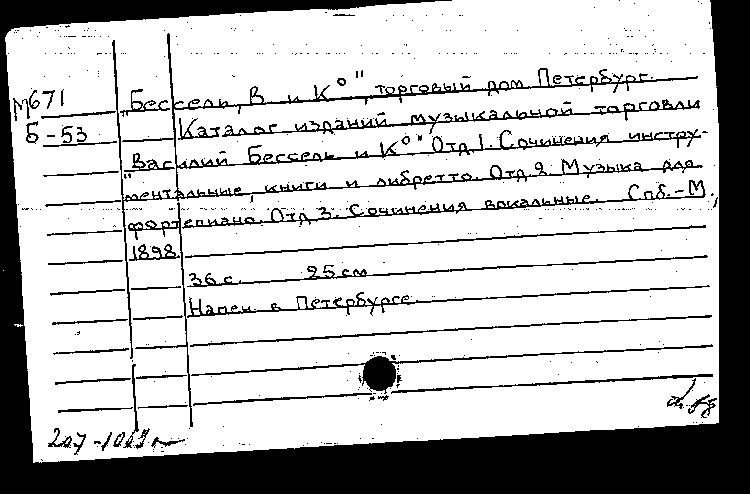 М671
Б-53
„Бессель, В и К°", торговый дом. Петербург.
Каталог изданий музыкальной торговли
„Василий Бессель и К°" Отд 1. Сочинения инстру-
ментальные, книги и либретто. Отд 2. Музыка для
фортепиано. Отд 3. Сочинения вокальные. Спб.-М.,
1898.
36 с. 25 см
Напеч. в Петербурге